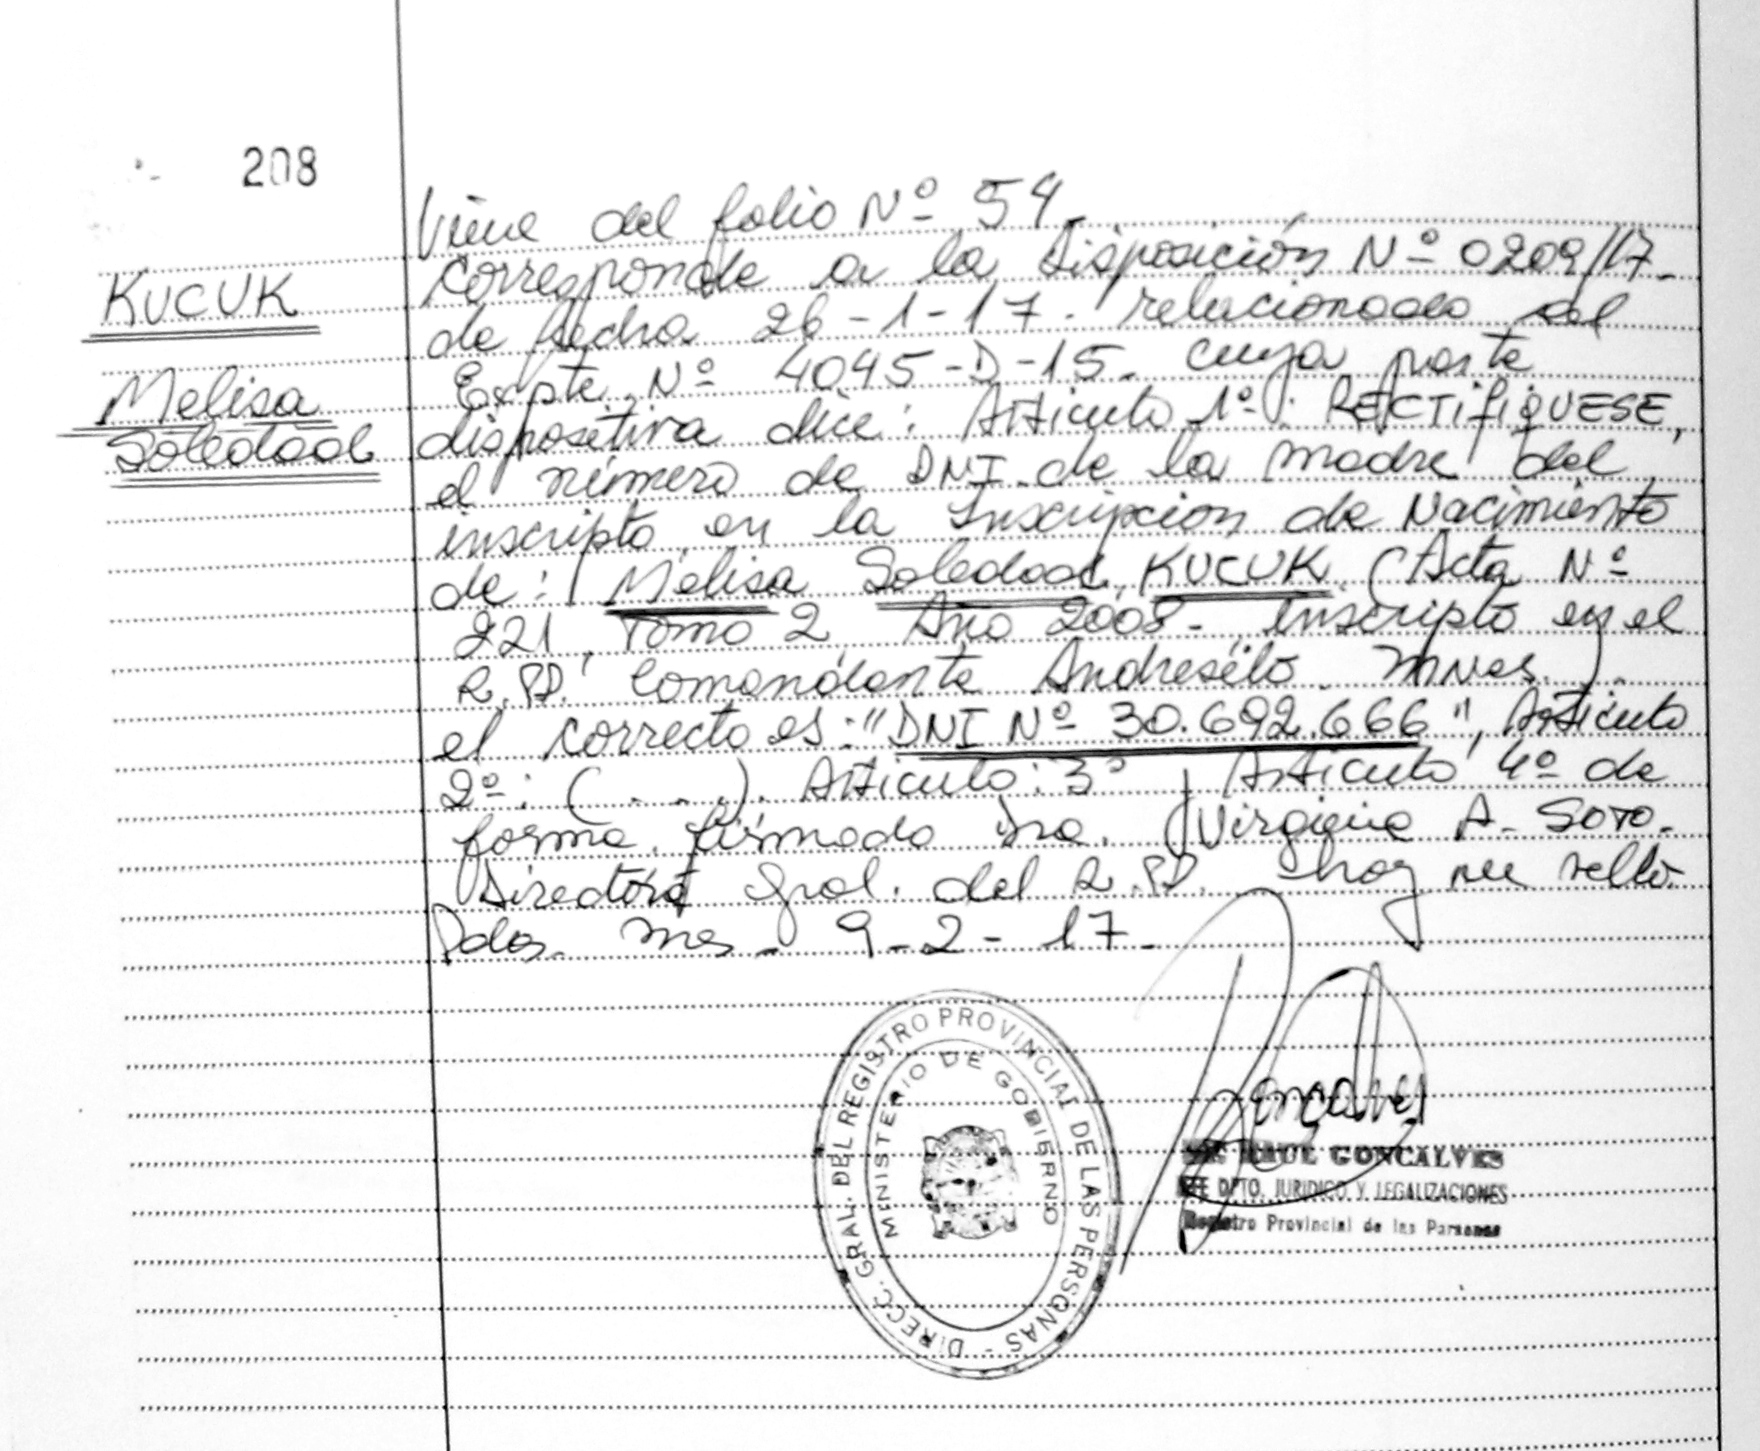 208
KUCUK
Melisa
Soledad
Viene del folio Nº 54.
Corresponde a la Disposición Nº 0209/17.
de fecha 26-1-17. relacionado al
Expte. Nº 4045-D-15. cuya parte
dispositiva dice: Artículo 1º: RECTIFIQUESE,
el número de DNI de la madre del
inscripto en la Inscripcion de Nacimiento
de: Melisa Soledad KUCUK (Acta Nº
221, Tomo 2 Año 2008- inscripto en el
R.PP. Comandante Andresito Mnes.)
el correcto es: "DNI Nº 30.692.666", Artículo
2º: (...). Artículo: 3º y Artículo 4º de
forma. firmado Dra. Virginia A. Soto.
Directora Gral. del R.PP. hay un sello.
Pdas. Mes. 9-2-17.
DIRECC. GRAL. DEL REGISTRO PROVINCIAL DE LAS PERSONAS -
MINISTERIO DE GOBIERNO
Goncalves
GONCALVES
DPTO. JURIDICO Y LEGALIZACIONES
Registro Provincial de las Personas